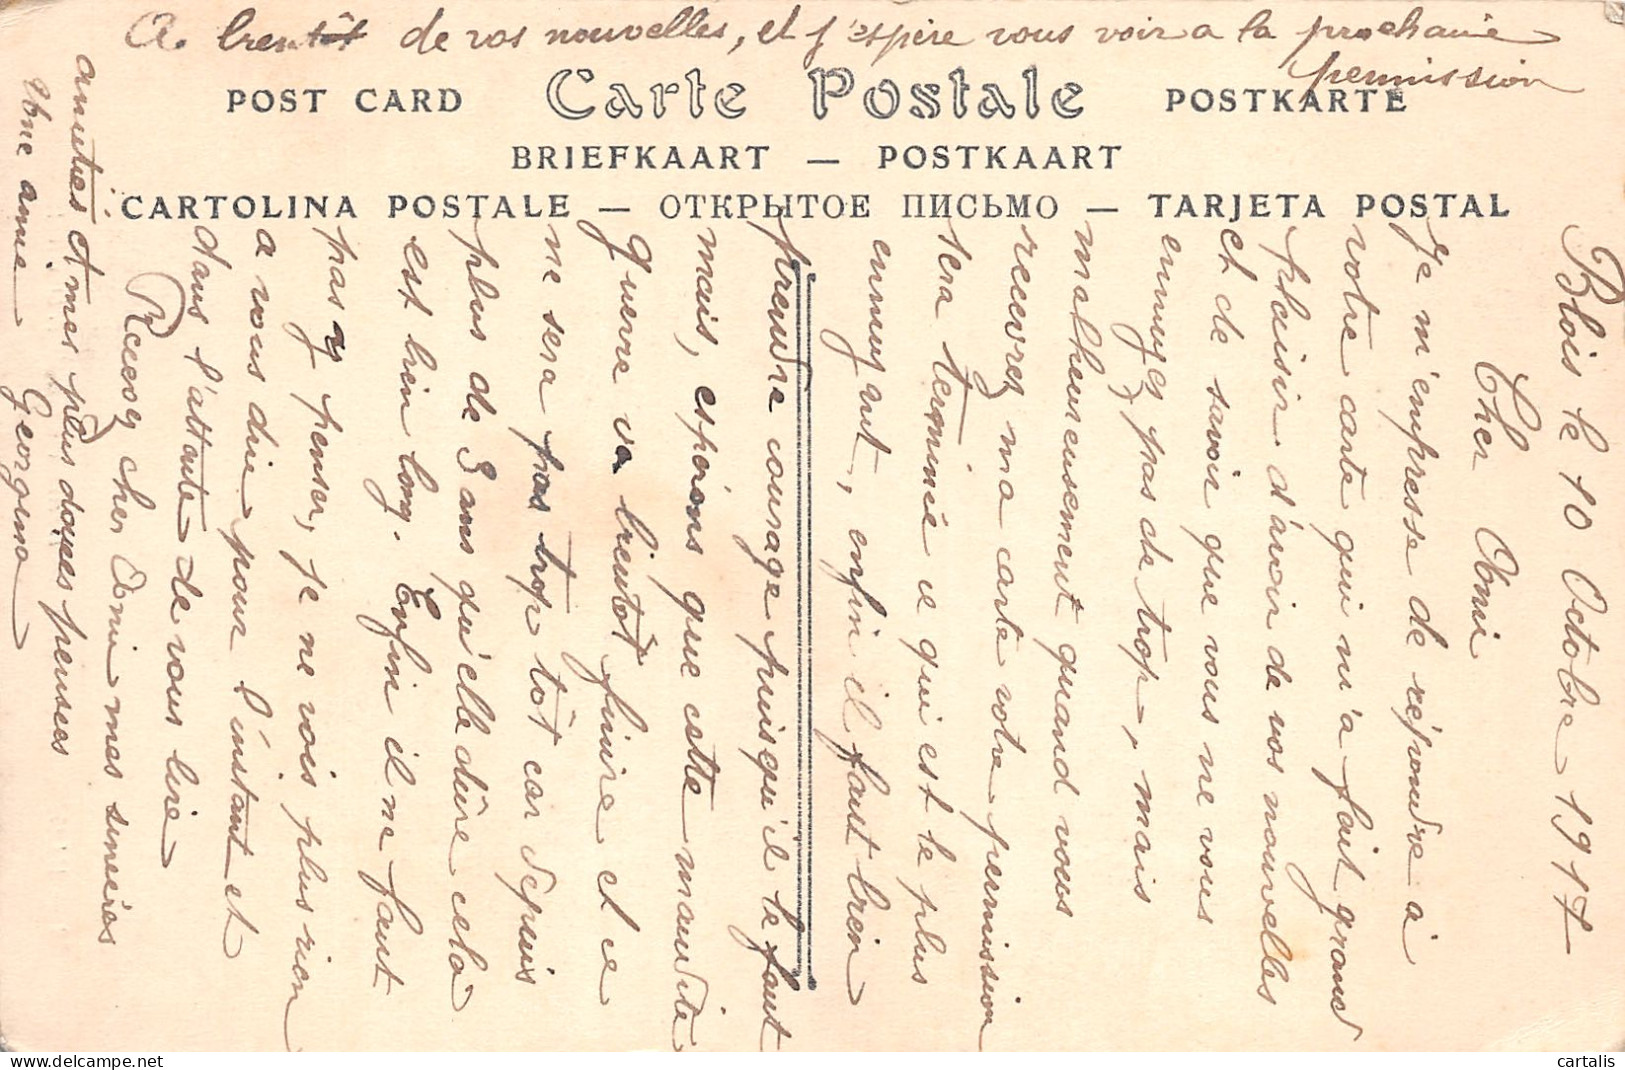 A. bientôt de vos nouvelles, et j'espère vous voir a la prochaine
permission
POST CARD Carte Postale POSTKARTE
BRIEFKAART — POSTKAART
CARTOLINA POSTALE — ОТКРЫТОЕ ПИСЬМО — TARJETA POSTAL
Blois le 10 Octobre 1917
Cher Ami
Je m'empresse de répondre à
votre carte qui m'a fait grand
plaisir d'avoir de vos nouvelles
et de savoir que vous ne vous
ennuyez pas de trop, mais
malheureusement quand vous
recevrez ma carte votre permission
sera terminée ce qui est le plus
ennuyant, enfin il faut bien
prendre courage puisqu'il le faut
mais, espérons que cette maudite
guerre va bientôt finire et ce
ne sera pas trop tôt car depuis
plus de 3 ans qu'elle dûre cela
est bien long. Enfin il ne faut
pas y penser, je ne vois plus rien
a vous dire pour l'instant et
dans l'attente de vous lire
Recevez cher Ami mes sincères
amitiés et mes plus douces pensées
Une amie Georgina
cartalis.com